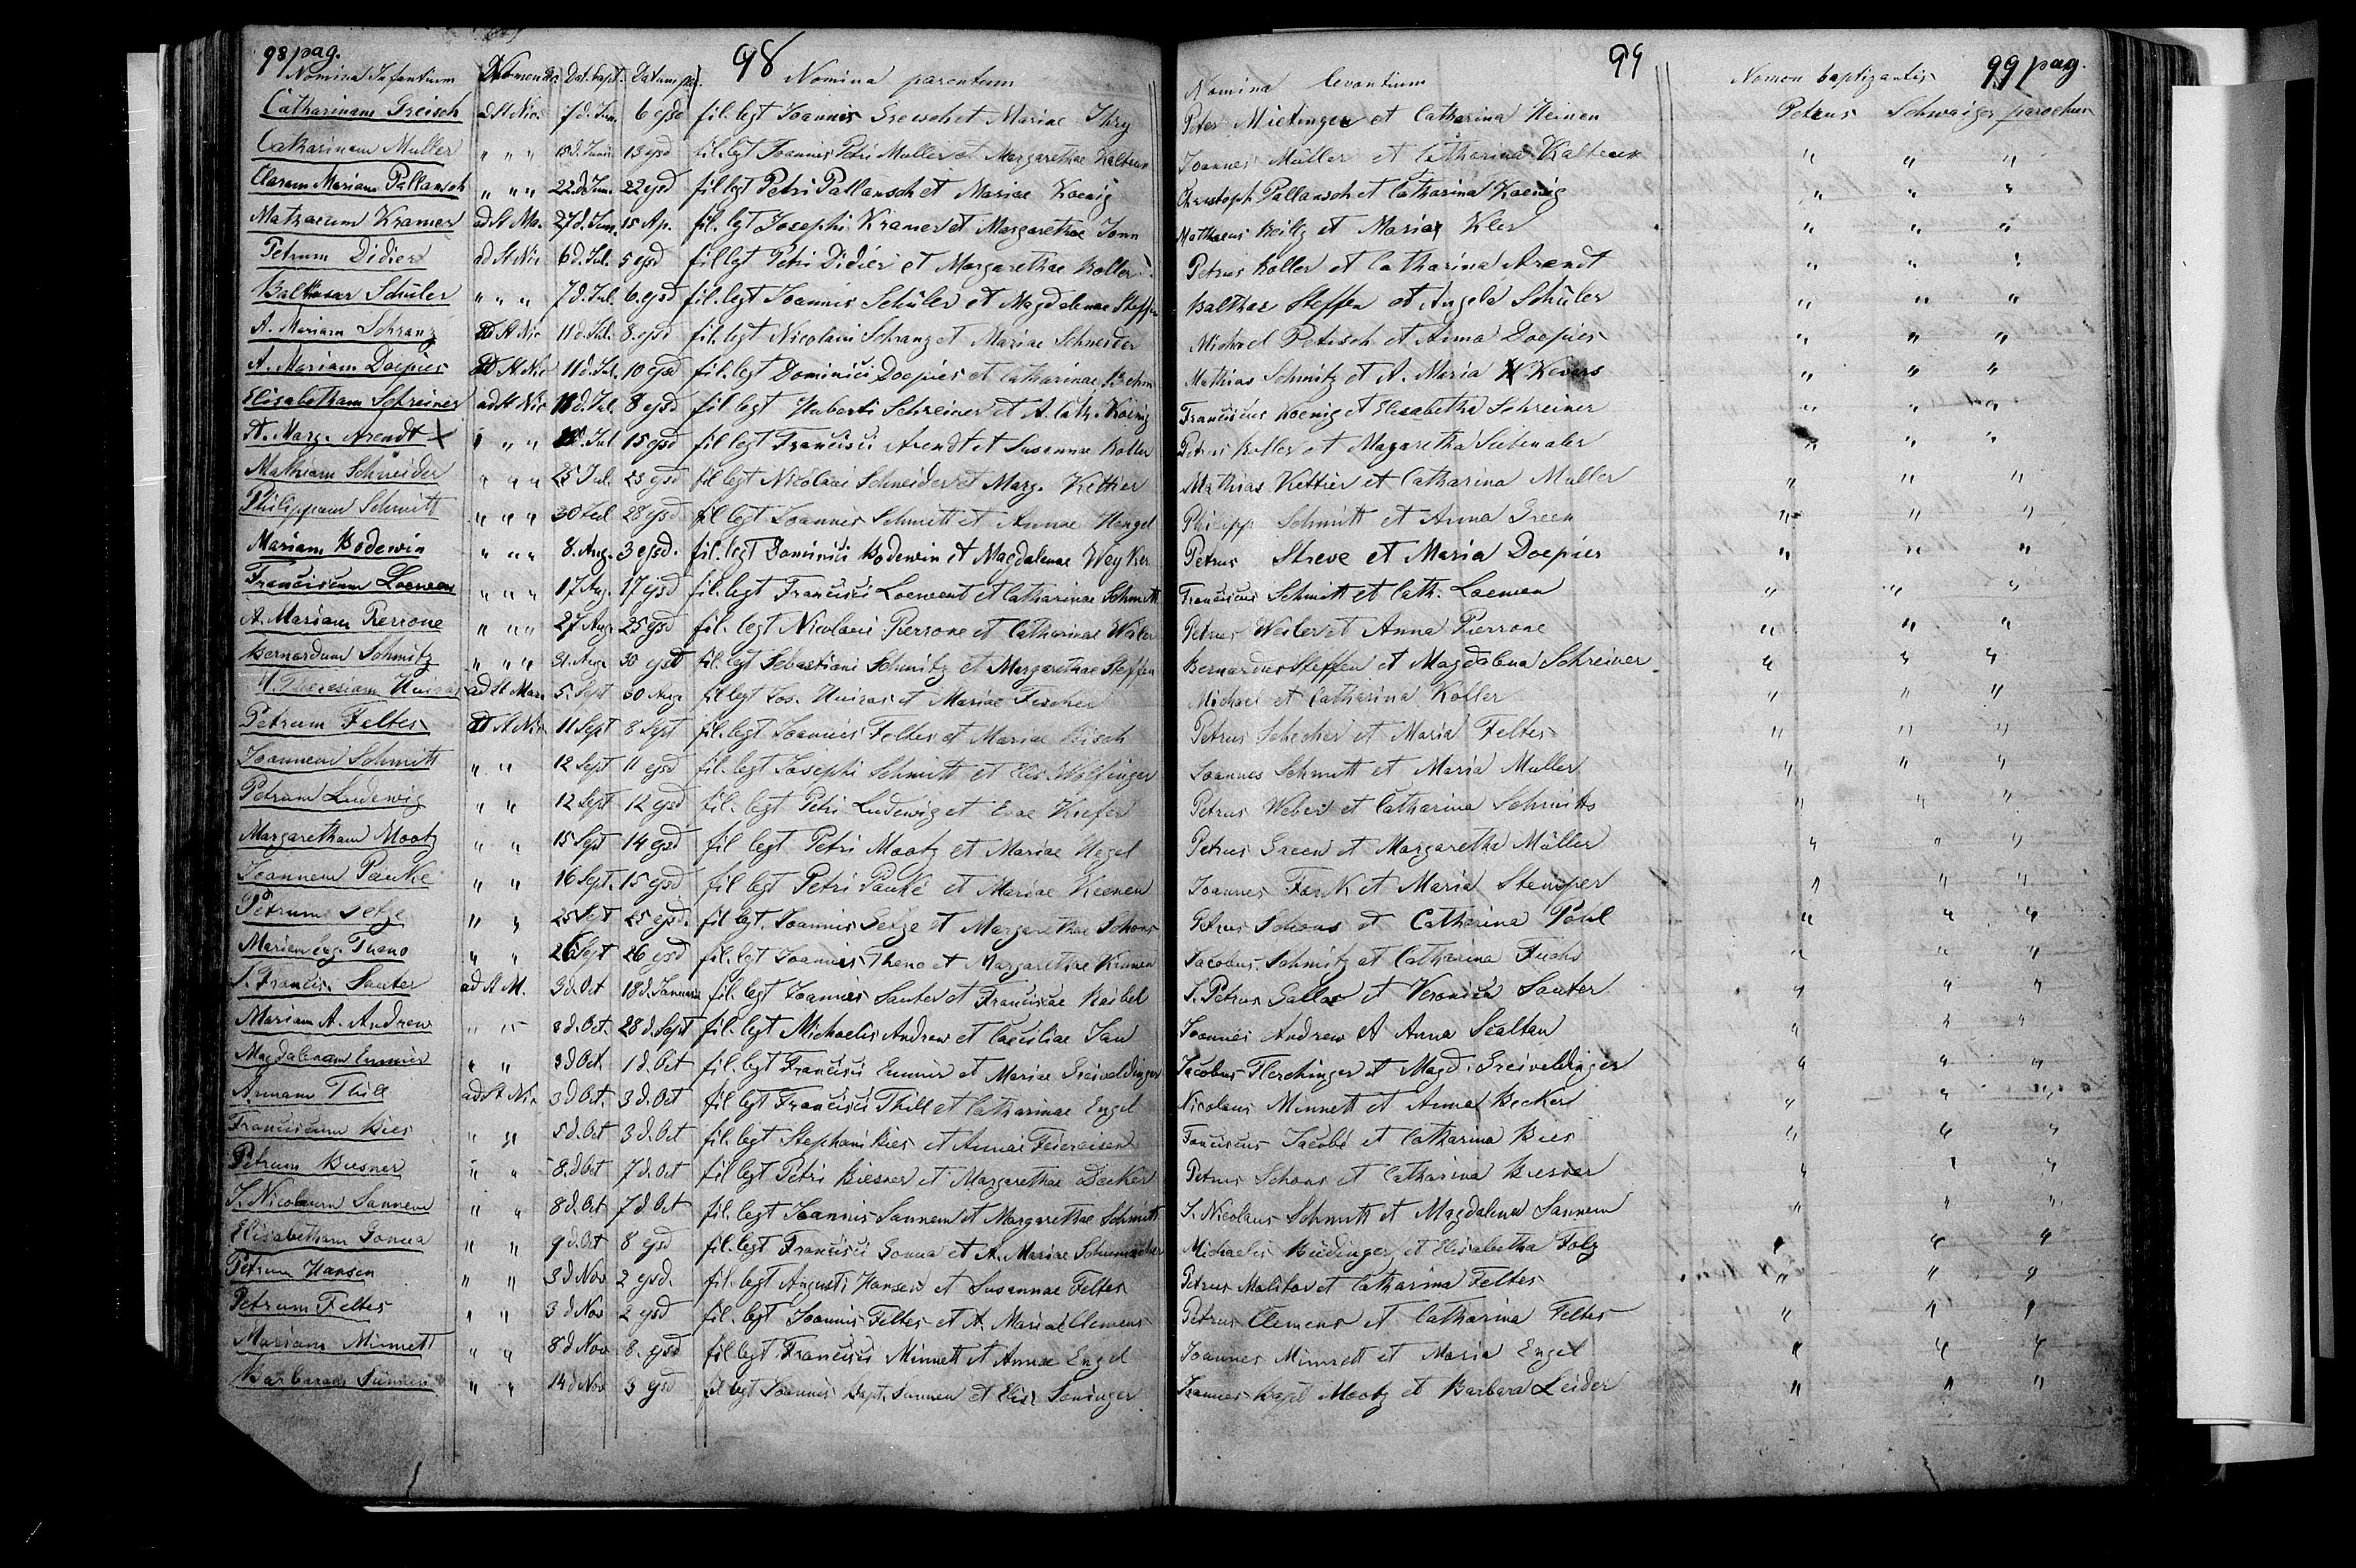 98 pag. 98 99 99 pag.
Nomina Infantium Dat. bapt. Datum Nomina parentum Nomina levantium Nomen baptizantis
Catharinam Greisch ad St Nic. 7 d. Jun. 6 ejsd fil. legt Joannis Greisch et Mariae Thiry Peter Mietinger et Catharina Heinen Petrus Schwaiger parochus
Catharinam Muller " " " 13 ejsd fil. legt Joannis Petri Muller et Margarethae Joannes Müller et Catharina " " "
Claram Mariam Pallansch " " " 22. d. Jun. 22 ejsd fil legt Petri Pallansch et Mariae Koenig Christoph Pallansch et Catharina Koenig " " "
Mathaeum Kramer ad St Ma. 27 d. Jun. 15 Ap. fil. legt Josephi Kramer et Margarethae Mathaeus et Maria Kler " " "
Petrum Didier ad St Nic 6 d. Jul. 5 ejsd fil legt Petri Didier et Margarethae Koller Petrus Koller et Catharina Arendt " " "
Balthasar Schuler " " " 7 d. Jul. 6 ejsd fil. legt Joannis Schüler et Magdalenae Steffen Balthas Steffen et Angela Schüler " " "
A. Mariam Schranz ad St Nic 11 d. Jul. 8 ejsd fil. legt Nicolaus Schranz et Mariae Schneider Michael Petesch et Anna Doepier " " "
A. Mariam Doepier ad St Nic 11 d. Jul. 10 ejsd fil. legt Dominici Doepier et Catharinae Mathias Schmitz et A. Maria Kevers " " "
Elisabetham Schreiner ad St Nic d. Jul. 8 ejsd fil legt Huberti Schreiner et A. Cath. Koenig Franciscus Koenig et Elisabetha Schreiner " " "
A. Marg. Arendt X " " " Jul 15 ejsd fil legt Francisci Arendt et Susannae Koller Petrus Koller et Magaretha Siebenaler " " "
Mathiam Schneider " " " 25 Jul. 25 ejsd fil legt Nicolaus Schneider et Marg. Kettier Mathias Kettier et Catharina Muller " " "
Philippum Schmitt " " " 30 Jul 28 ejsd fil legt Joannis Schmitt et Annae Hengel Philipp Schmitt et Anna Green " " "
Mariam Bodewin " " " 8. Aug. 3 ejsd. fil. legt Dominici Bodewin et Magdalenae Weyker Petrus Streve et Maria Doepier " " "
Franciscum Loewen " " " 17 Aug. 17 ejsd fil. legt Francisci Loewen et Catharinae Schmitt Franciscus Schmitt et Cath. Loewen " " "
A. Mariam Pierrone " " " 27 Aug. 25 ejsd fil. legt Nicolaus Pierrone et Catharinae Weiler Petrus Weiler et Anna Pierrone " " "
Bernardum Schmitz " " " 31. Aug. 30 ejsd fil. legt Sebastiani Schmitz et Margarethae Steffen Bernardus Steffen et Magdalena Schreiner " " "
Theresiam Huiras ad St Mar. 5. Sept 30 Aug. fil legt Jos. Huiras et Mariae Fischer Michael et Catharina Koller " " "
Petrum Feltes ad St Nic 11 Sept 8 Sept fil. legt Joannis Feltes et Mariae Risch Petrus Schecher et Maria Feltes " " "
Joannem Schmitt " " 12 Sept 11 ejsd fil. legt Josephi Schmitt et Elis. Wolfinger Joannes Schmitt et Maria Muller " " "
Petrum Ludewig " " 12 Sept 12 ejsd fil. legt Petri Ludewig et Evae Kiefer Petrus Weber et Catharina Schmitts " " "
Margaretham Mootz " " 15 Sept 14 ejsd fil legt Petri Mootz et Mariae Hegel Petrus Green et Margaretha Müller " " "
Joannem Pauke " " 16 Sept. 15 ejsd fil legt Petri Pauke et Mariae Keenen Joannes et Maria Stemper " " "
Petrum Setze " " 25 Sept 25 ejsd. fil legt. Joannis Setze et Margarethae Schons Petrus Schons et Catharina Paul " " "
Theno " " 26 Sept 26 ejsd fil. legt Joannis Theno et Margarethae Jacobus Schmitz et Catharina Fuchs " " "
J. Francis. Sauter ad St M. 3 d. Oct 18 d. Januarii fil. legt Joannis Sauter et Franciscae Keibel J. Petrus Galles et Veronica Sauter " " "
Mariam A. Andrew " " 3 d. Oct. 28 d. Sept fil. legt Michaelis Andrew et Caeciliae Joannes Andrew et Anna Scaltan " " "
Magdalenam Emmer " " 3 d Oct. 1 d. Oct fil. legt Francisci Emmer et Mariae Greiveldinger Jacobus Flerchinger et Magd. Greiveldinger " " "
Annam Thill ad St Nic 3 d Oct. 3 d. Oct fil legt Francisci Thill et Catharinae Engel Nicolaus Minnett et Anna Becker " " "
Franciscum Bies " " 5 d. Oct 3 d. Oct fil. legt Stephani Bies et Annae Feiereisen Franciscus Jacobi et Catharina Bies " " "
Petrum Biesner " " 8. d Oct 7 d. Oct fil legt Petri Biesner et Margarethae Decker Petrus Schons et Catharina Biesner " " "
J. Nicolaum Sannem " " 8 d. Oct 7 d. Oct fil. legt Joannis Sannem et Margarethae Schmitt J. Nicolaus Schmitt et Magdalena Sannem " " "
Elisabetham Gonna " " 9 d. Oct 8 ejsd fil. legt Francisci Gonna et A. Mariae Schumacher Michaelis Büdinger et Elisabetha Folz " " "
Petrum Hansen " " 3 d Nov 2 ejsd. fil. legt Augusti Hansen et Susannae Feltes Petrus Malitor et Catharina Feltes " " "
Petrum Feltes " " 3 d Nov 2 ejsd fil. legt Joannis Feltes et A. Mariae Clemens Petrus Clemens et Catharina Feltes " " "
Mariam Minnett " " 8 d Nov 8. ejsd fil legt Francisci Minnett et Annae Engel Joannes Minnett et Maria Engel " " "
Barbaram Sunnen " " 14 d Nov 3 ejsd fil legt Joannis Bapt. Sunnen et Elis. Seninger Joannes Bapt Mootz et Barbara Leider " " "